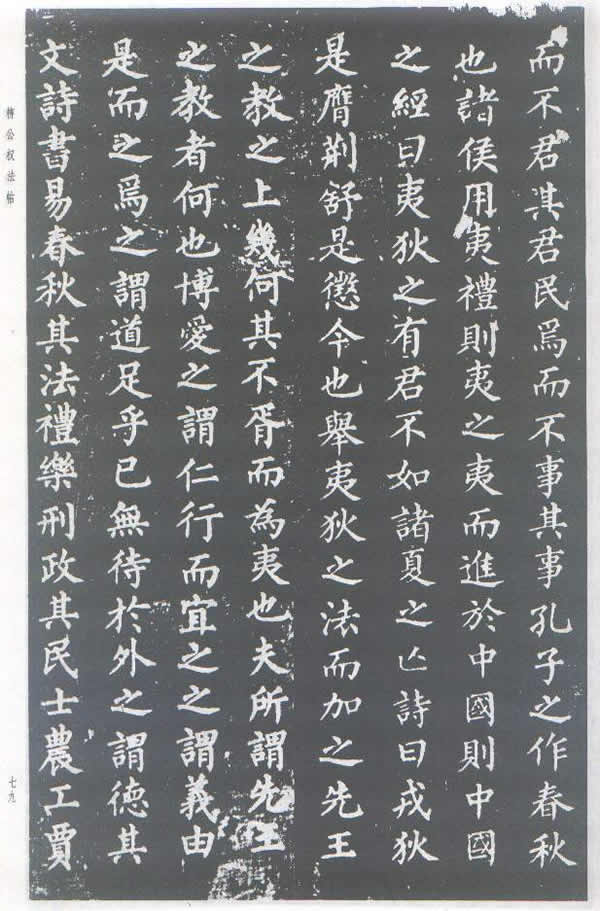 而不君其君民焉而不事其事孔子之作春秋
也諸侯用夷禮則夷之夷而進於中國則中國
之經曰夷狄之有君不如諸夏之亡詩曰戎狄
是膺荆舒是懲今也舉夷狄之法而加之先王
之教之上幾何其不胥而為夷也夫所謂先王
之教者何也博愛之謂仁行而宜之之謂義由
是而之焉之謂道足乎已無待於外之謂德其
文詩書易春秋其法禮樂刑政其民士農工賈
公权法帖
七九